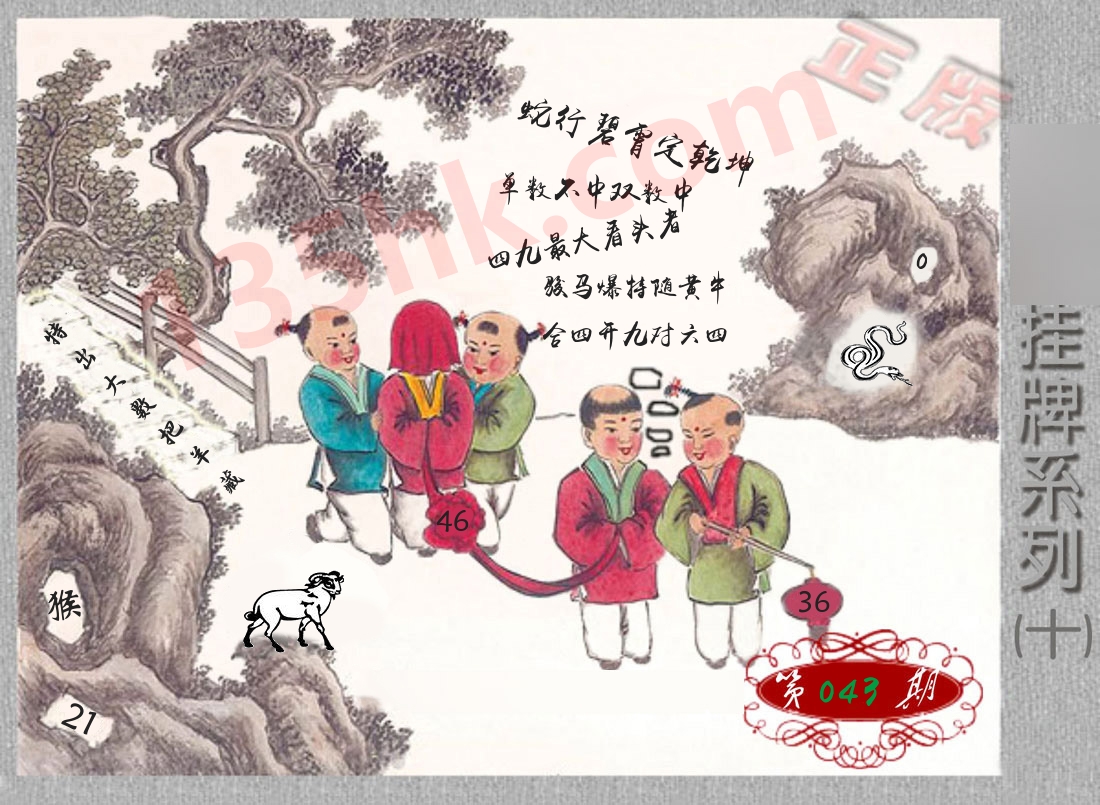 正版
135hk.com
蛇行碧霄定乾坤
单数不中双数中
四九最大看头者
骏马爆特随黄牛
合四开九对六四
0
特出大數把羊藏
46
36
猴
21
第043期
挂牌系列(十)